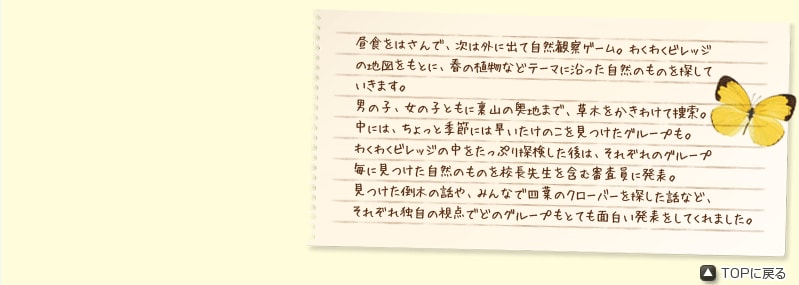 昼食をはさんで、次は外に出て自然観察ゲーム。わくわくビレッジ
の地図をもとに、春の植物などテーマに沿った自然のものを探して
いきます。
男の子、女の子ともに裏山の奥地まで、草木をかきわけて捜索。
中には、ちょっと季節には早いたけのこを見つけたグループも。
わくわくビレッジの中をたっぷり探検した後は、それぞれのグループ
毎に見つけた自然のものを校長先生を含む審査員に発表。
見つけた倒木の話や、みんなで四葉のクローバーを探した話など、
それぞれ独自の視点でどのグループもとても面白い発表をしてくれました。
TOPに戻る